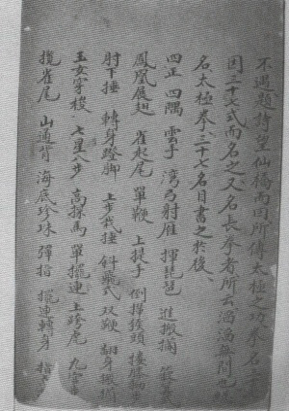 不遇題詩望仙橋而回所傳太極之功拳名三
因三十七式而名之又名長拳者所云滔滔無間也總
名太極拳三十七名目書之於後
四正 四隅 雲手 彎弓射雁 揮琵琶 進搬攔
鳳凰展翅 雀起尾 單鞭 上提手 倒攆猴頭 摟膝拗步
肘下捶 轉身蹬脚 上步栽捶 斜飛式 双鞭 翻身搬攔
玉女穿梭 七星八步 高探馬 單擺連 上跨虎 九宮
攬雀尾 山通背 海底珍珠 彈指 擺連轉身 指